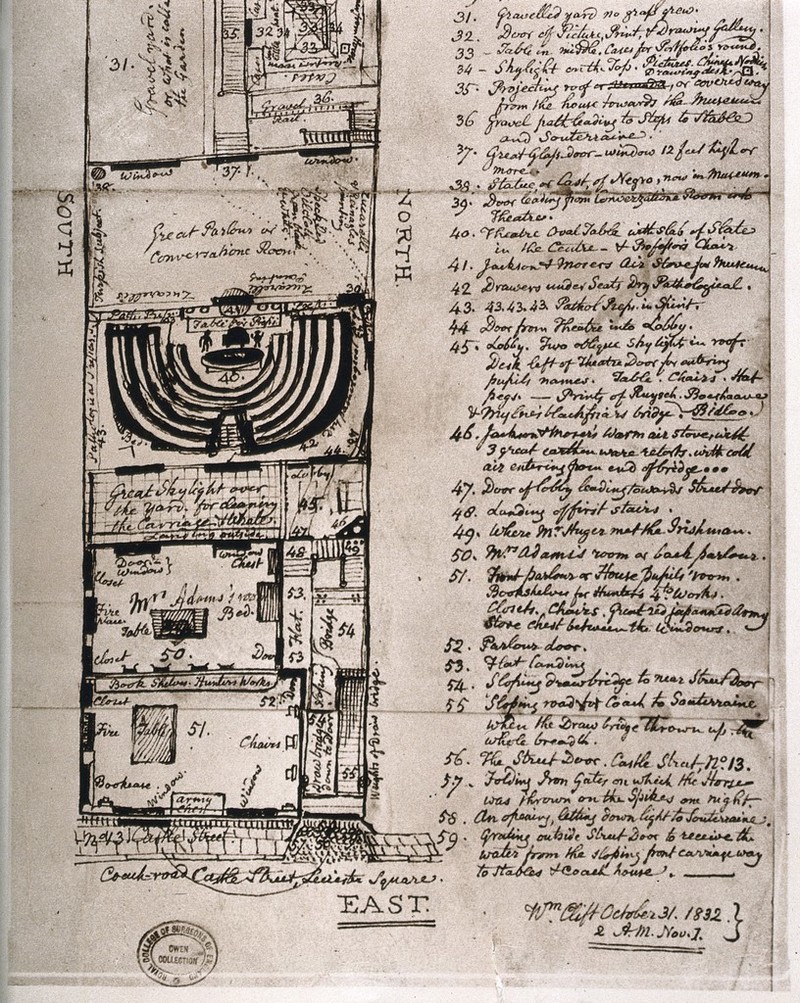 31.
Gravel yard.
or what is called
the Garden
35
32
34
33
33
34
Cases
Gravel 36.
Rail
Window
37.
Window
38.
SOUTH
NORTH.
Great Parlour or
Conversatione Room
Turkish Subject.
Zucarelli
Zucarelli
39
Path. Preps.
41
Table for Preps.
40.
43.
42
44.
Great Skylight over
the yard. for cleaning
the Carriage. & Heads
Landing outside
Lobby
45.
46
47
Door &
Window
Window
Chest
48
49
Closet
Fire
place
Mrs Adams's room
Bed.
Table
53.
Flat.
53
Bridge
54
Closet
50.
Door
Sloping
Book Shelves. Hunters Works
Closet
52.
Door
Fire
Table
51.
Chairs
Draw bridge
down to Door
55
Weights of Draw bridge
Bookcase
Window
Army
Chest
Window
No 13 Castle Street
Coach-road Castle Street, Leicester Square.
EAST.
31. Gravelled yard no grass grew.
32. Door of Picture, Print, & Drawing Gallery.
33 - Table in middle. Cases for Portfolio's round.
34 - Skylight on the Top. Pictures. Chinese Nodding
Drawing desk.
35. Projecting roof or Veranda, or covered way
from the house towards the Museum
36 Gravel path leading to Steps to Stable
and Souterraine.
37. Great Glass-door-window 12 feet high or
more.
38. Statue, or Cast, of Negro, now in Museum.
39. Door leading from Conversatione Room into
Theatre.
40. Theatre Oval Table with Slab of Slate
in the Centre - & Professor's Chair.
41. Jackson & Mosers Air Stove for Museum
42 Drawers under Seats Dry Pathological.
43. 43. 43. 43. Pathol Preps. in Spirit.
44 Door from Theatre into Lobby.
45. Lobby. Two oblique Skylight in roof.
Desk left of Theatre Door for entering
pupils names. Table. Chairs. Hat
pegs. — Prints of Ruysch. Boerhaave
& Mylne's blackfriars bridge. Bidloo.
46. Jackson & Moser's Warm air Stove, with
3 great earthen ware retorts. with cold
air entering from end of bridge
47. Door of lobby leading towards Street door
48. Landing of first stairs.
49. Where Mr. Huger met the Irishman.
50. Mrs Adams's room or back parlour.
51. Front parlour or House Pupils' room.
Bookshelves for Hunter's 4to Works.
Closets. Chairs. Great red japanned Army
Store chest between the Windows.
52. Parlour door.
53. Flat landing
54. Sloping drawbridge to near Street Door
55 Sloping road for Coach to Souterraine
when the Draw bridge thrown up. the
whole breadth.
56. The Street Door. Castle Street, No 13.
57. Folding Iron Gates on which the Horse
was thrown on the Spikes one night.
58. An opening, letting down light to Souterraine.
59. Grating outside Street Door to receive the
water from the sloping front carriage way
to Stables & Coach house.
Wm Clift October 31. 1832.
2 A.M. Nov. 1.
ROYAL COLLEGE OF SURGEONS OF ENGLAND
OWEN
COLLECTION